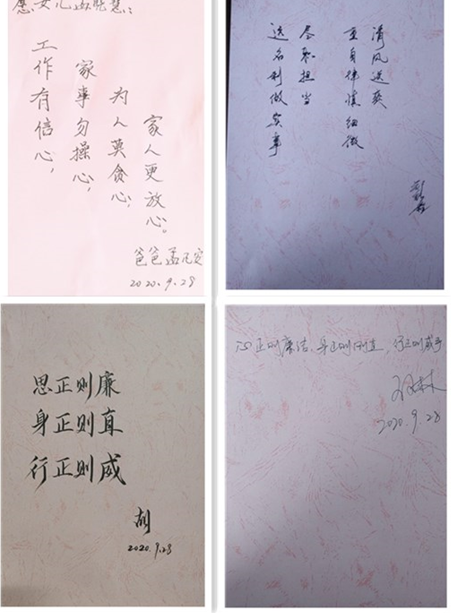 工作有信心,
家事勿操心,
为人莫贪心,
家人更放心。
爸爸 孟凡
2020.9.29
清风送爽
重自律慎细微
尽职担当
名利做实事
思正则廉
身正则直
行正则威
胡
2020.9.28
心正则廉洁、身正则直、行正则威
2020.9.28